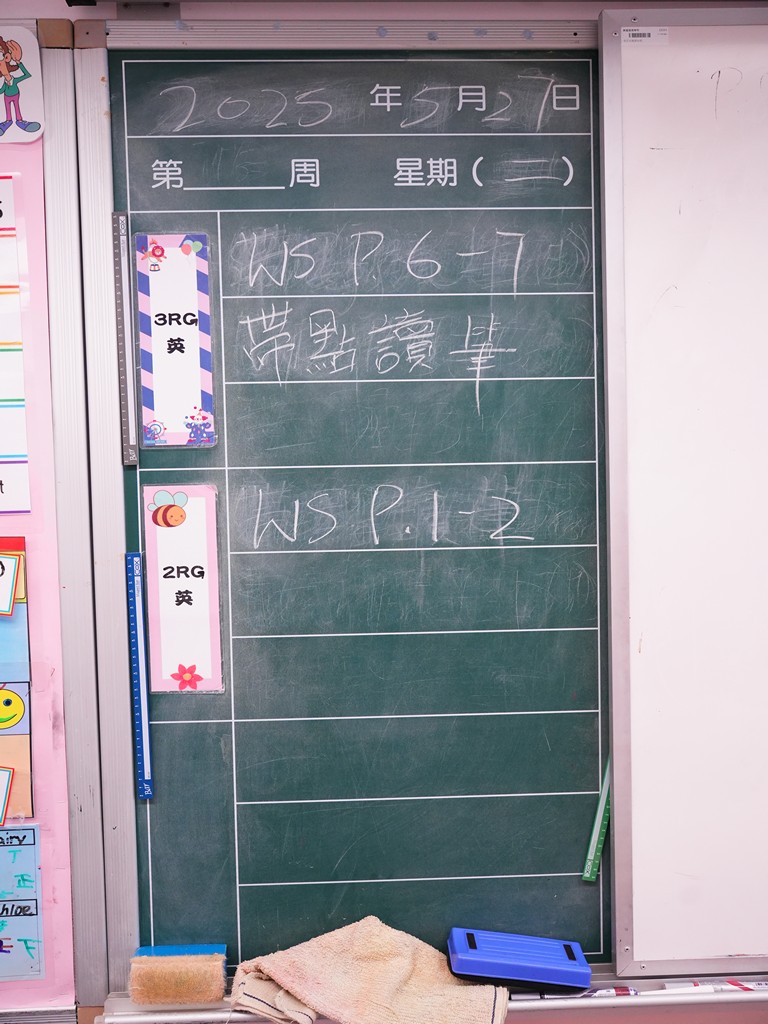 2025 年 5 月 27 日
第 周 星期(二)
3RG
英
WS P. 6-7
帶點讀筆
2RG
英
WS P. 1-2
airy
hloe